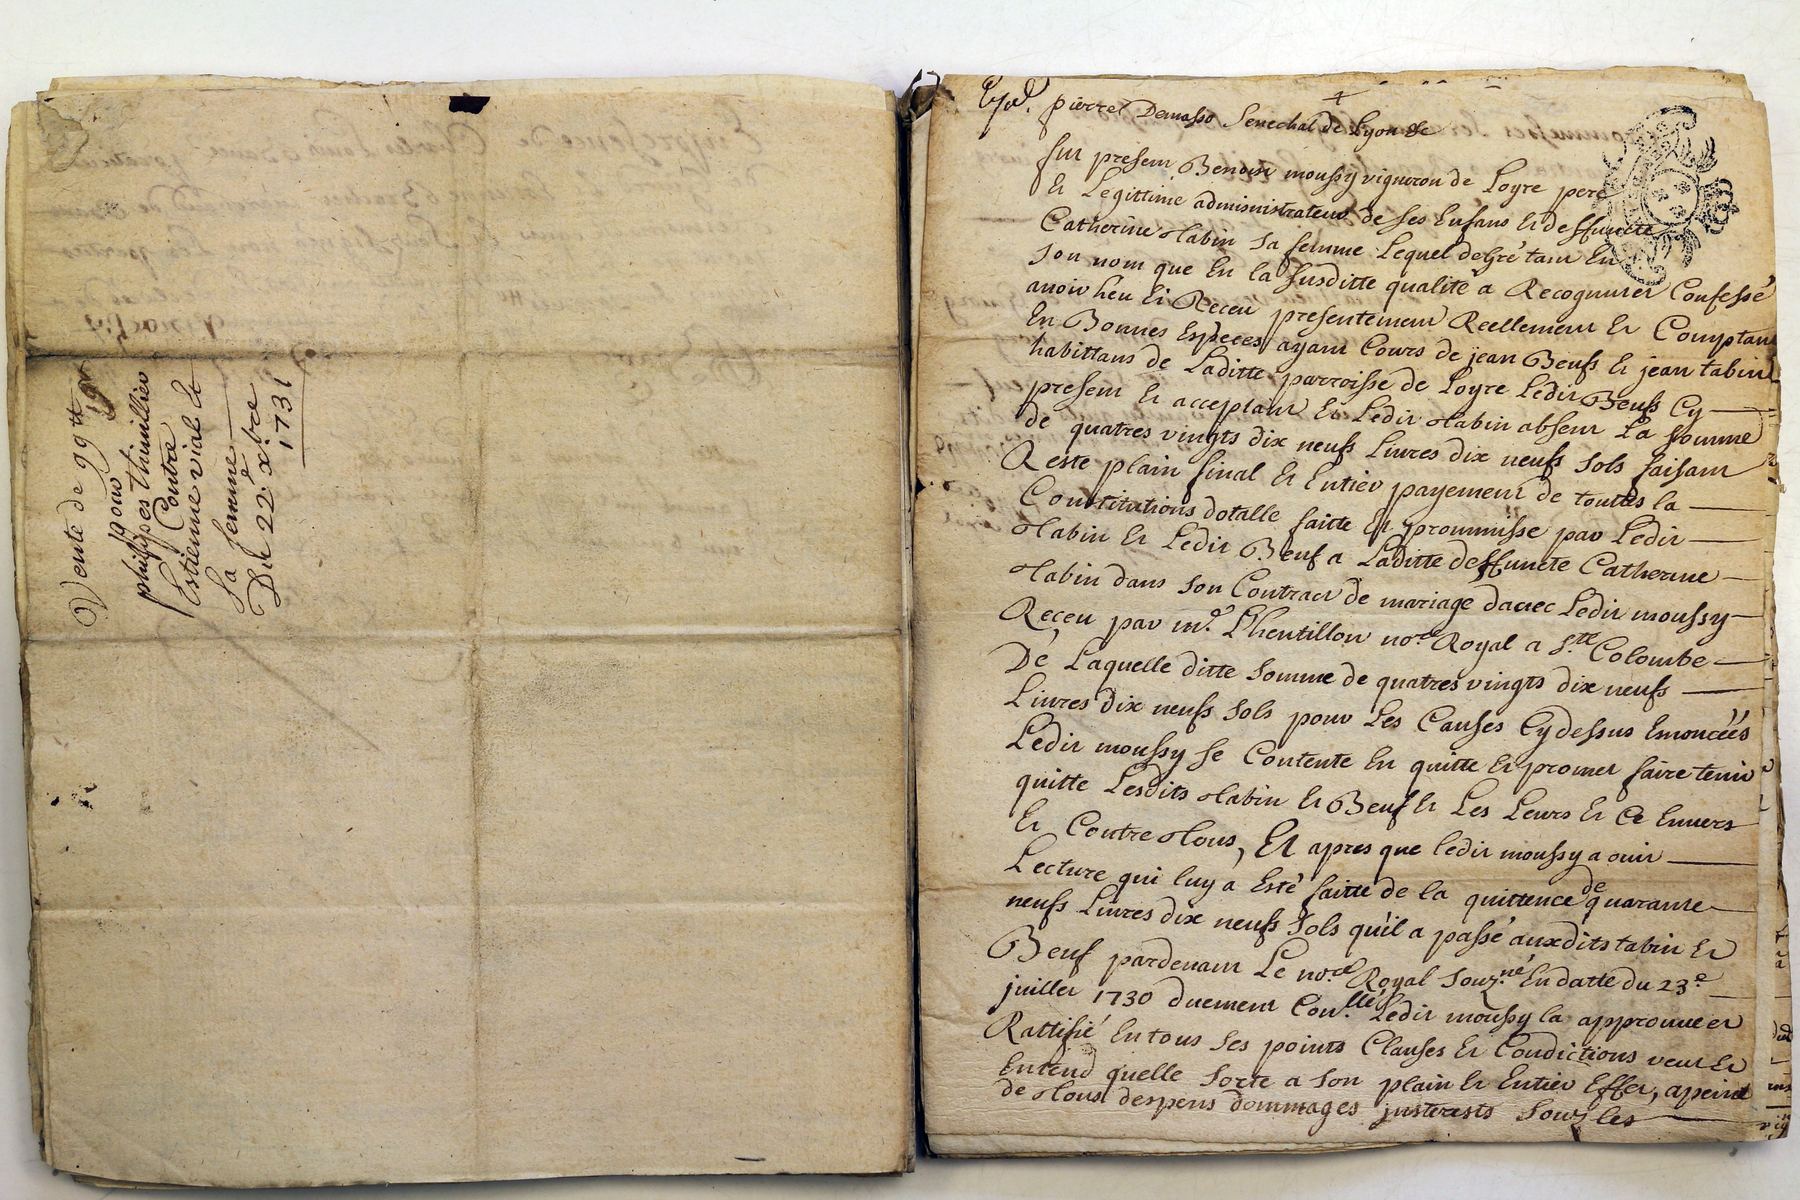 Vente de 99 tt
pour
philippes thuillier
Contre
Estienne vial et
Sa femme
Du 22e xbre
1731
pierre Demasso Senechal de Lyon &c
fut present Benoist moussy vigneron de Loyre pere
Et Legittime administrateur de ses Enfans Et deffuncte
Catherine tabin sa femme Lequel de gré tant En
son nom que En la susditte qualité a Recognu et Confessé
avoir heu Et Receu presentement Reellement Et Comptant
En Bonnes Especes ayant Cours de jean Beufs Et jean tabin
habittans de Laditte parroisse de Loyre Ledit Beufs Cy
present Et acceptant Et Ledit tabin absent La somme
de quatres vingts dix neufs Livres dix neufs sols faisant
Reste plain final Et Entier payement de touttes la
Constitutions dotalle faitte Et proummisse par Ledit
tabin Et Ledit Beuf a Laditte deffuncte Catherine
tabin dans son Contract de mariage d'avec Ledit moussy
Receu par me. Lhentillon nore Royal a Ste Colombe
De Laquelle ditte somme de quatres vingts dix neufs
Livres dix neufs sols pour Les Causes Cy dessus Enoncéés
Ledit moussy se Contente En quitte Et promet faire tenir
quitte Lesdits tabin Et Beuf Et Les Leurs Et Ce Envers
Et Contre tous, Et apres que ledit moussy a ouir
Lecture qui luy a Esté faitte de la quittence de quarante
neufs Livres dix neufs sols qu'il a passé auxdits tabin Et
Beuf pardevant Le nore Royal souz.né En datte du 23e
juillet 1730 duement Con.llé Ledit moussy la approuve et
Rattifié En tous ses points Clauses Et Condictions veut Et
Entend quelle sorte a son plain Et Entier Effet, a peine
de tous despens dommages justerests souz les